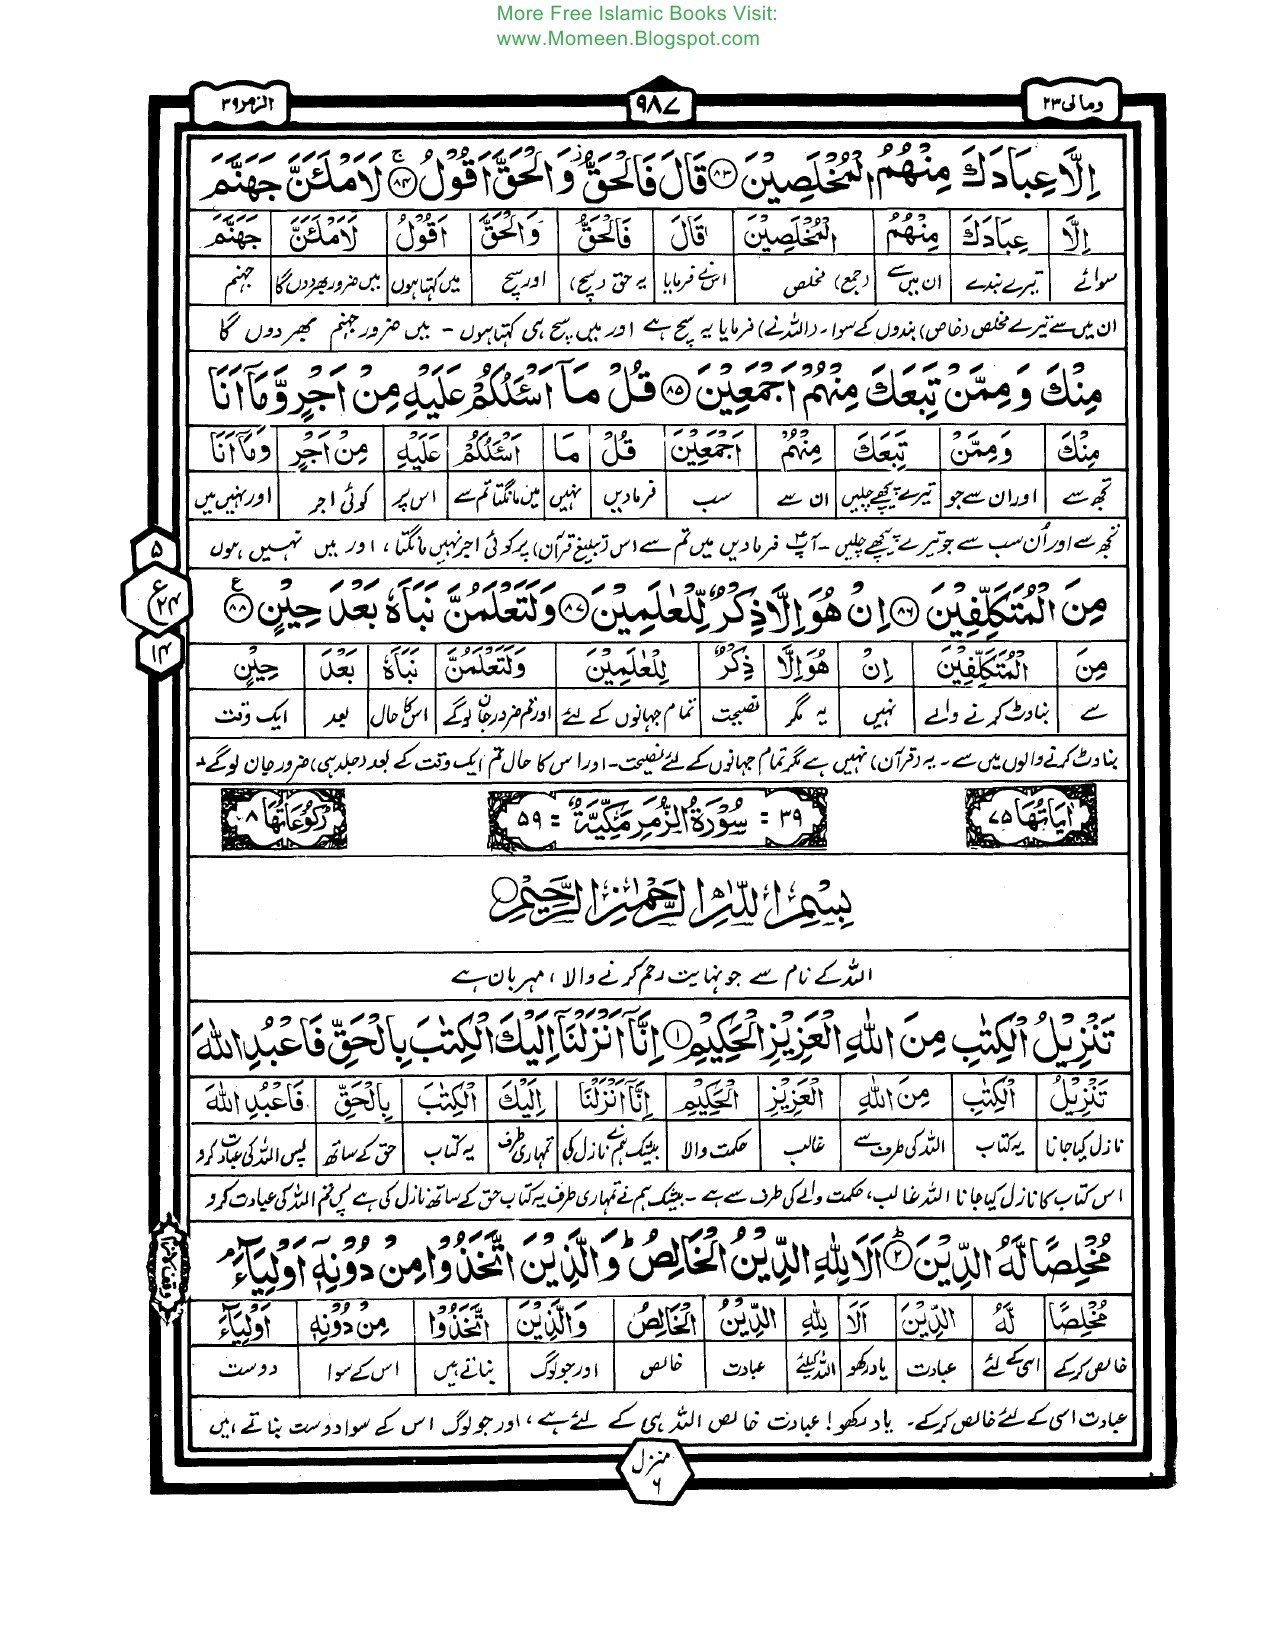 More Free Islamic Books Visit:
www.Momeen.Blogspot.com
ومالی ۲۳
۹۸۷
الزمر ۳۹
اِلَّا عِبَادَكَ مِنْهُمُ الْمُخْلَصِيْنَ ﴿۸۳﴾ قَالَ فَالْحَقُّ ۫ وَالْحَقَّ اَقُوْلُ ۚ﴿۸۴﴾ لَاَمْلَئَنَّ جَهَنَّمَ
اِلَّا عِبَادَكَ مِنْهُمُ الْمُخْلَصِيْنَ قَالَ فَالْحَقُّ وَالْحَقَّ اَقُوْلُ لَاَمْلَئَنَّ جَهَنَّمَ
سوائے تیرے بندے ان میں سے (جمع) مخلص اس نے فرمایا یہ حق (سچ) اور سچ میں کہتا ہوں میں ضرور بھردوں گا جہنم
ان میں سے تیرے مخلص (خاص) بندوں کے سوا۔ (اللہ نے) فرمایا یہ سچ ہے اور میں سچ ہی کہتا ہوں - میں ضرور جہنم بھر دوں گا
مِنْكَ وَمِمَّنْ تَبِعَكَ مِنْهُمْ اَجْمَعِيْنَ ﴿۸۵﴾ قُلْ مَاۤ اَسْئَلُكُمْ عَلَيْهِ مِنْ اَجْرٍ وَّمَاۤ اَنَا
مِنْكَ وَمِمَّنْ تَبِعَكَ مِنْهُمْ اَجْمَعِيْنَ قُلْ مَا اَسْئَلُكُمْ عَلَيْهِ مِنْ اَجْرٍ وَمَاۤ اَنَا
تجھ سے اور ان سے جو تیرے پیچھے چلیں ان سے سب فرمادیں نہیں میں مانگتا تم سے اس پر کوئی اجر اور نہیں میں
تجھ سے اور اُن سب سے جو تیرے پیچھے چلیں - آپؐ فرمادیں میں تم سے اس (تبلیغ قرآن) پر کوئی اجر نہیں مانگتا، اور میں نہیں ہوں
مِنَ الْمُتَكَلِّفِيْنَ ﴿۸۶﴾ اِنْ هُوَ اِلَّا ذِكْرٌ لِّلْعٰلَمِيْنَ ﴿۸۷﴾ وَلَتَعْلَمُنَّ نَبَاَهٗ بَعْدَ حِيْنٍ ﴿۸۸﴾ ع
۵
ع ۲۴
۱۴
مِنَ الْمُتَكَلِّفِيْنَ اِنْ هُوَ اِلَّا ذِكْرٌ لِلْعٰلَمِيْنَ وَلَتَعْلَمُنَّ نَبَاَهٗ بَعْدَ حِيْنٍ
سے بناوٹ کرنے والے نہیں یہ مگر نصیحت تمام جہانوں کے لئے اور تم ضرور جان لوگے اس کا حال بعد ایک وقت
بناوٹ کرنے والوں میں سے۔ یہ (قرآن) نہیں ہے مگر تمام جہانوں کے لئے نصیحت۔ اور اس کا حال تم ایک وقت کے بعد (جلد ہی) ضرور جان لوگے۔
اٰیَاتُهَا ۷۵
۳۹ = سُوْرَةُ الزُّمَرِ مَكِّيَّةٌ = ۵۹
رُكُوْعَاتُهَا ۸
بِسْمِ اللّٰهِ الرَّحْمٰنِ الرَّحِيْمِ
اللہ کے نام سے جو نہایت رحم کرنے والا ، مہربان ہے
تَنْزِيْلُ الْكِتٰبِ مِنَ اللّٰهِ الْعَزِيْزِ الْحَكِيْمِ ﴿۱﴾ اِنَّاۤ اَنْزَلْنَاۤ اِلَيْكَ الْكِتٰبَ بِالْحَقِّ فَاعْبُدِ اللّٰهَ
تَنْزِيْلُ الْكِتٰبِ مِنَ اللّٰهِ الْعَزِيْزِ الْحَكِيْمِ اِنَّاۤ اَنْزَلْنَاۤ اِلَيْكَ الْكِتٰبَ بِالْحَقِّ فَاعْبُدِ اللّٰهَ
نازل کیا جانا یہ کتاب اللہ کی طرف سے غالب حکمت والا بیشک ہم نے نازل کی تمہاری طرف یہ کتاب حق کے ساتھ پس اللہ کی عبادت کرو
اس کتاب کا نازل کیا جانا اللہ غالب، حکمت والے کی طرف سے ہے - بیشک ہم نے تمہاری طرف یہ کتاب حق کے ساتھ نازل کی ہے پس تم اللہ کی عبادت کرو
مُخْلِصًا لَّهُ الدِّيْنَ ﴿۲﴾ؕ اَلَا لِلّٰهِ الدِّيْنُ الْخَالِصُ ؕ وَالَّذِيْنَ اتَّخَذُوْا مِنْ دُوْنِهٖۤ اَوْلِيَآءَ ۘ
مُخْلِصًا لَّهُ الدِّيْنَ اَلَا لِلّٰهِ الدِّيْنُ الْخَالِصُ وَالَّذِيْنَ اتَّخَذُوْا مِنْ دُوْنِهٖ اَوْلِيَآءَ
خالص کرکے اسی کے لئے عبادت یاد رکھو اللہ کیلئے عبادت خالص اور جو لوگ بناتے ہیں اس کے سوا دوست
عبادت اسی کے لئے خالص کرکے۔ یاد رکھو! عبادت خالص اللہ ہی کے لئے ہے ، اور جو لوگ اس کے سوا دوست بناتے ہیں
منزل ۶